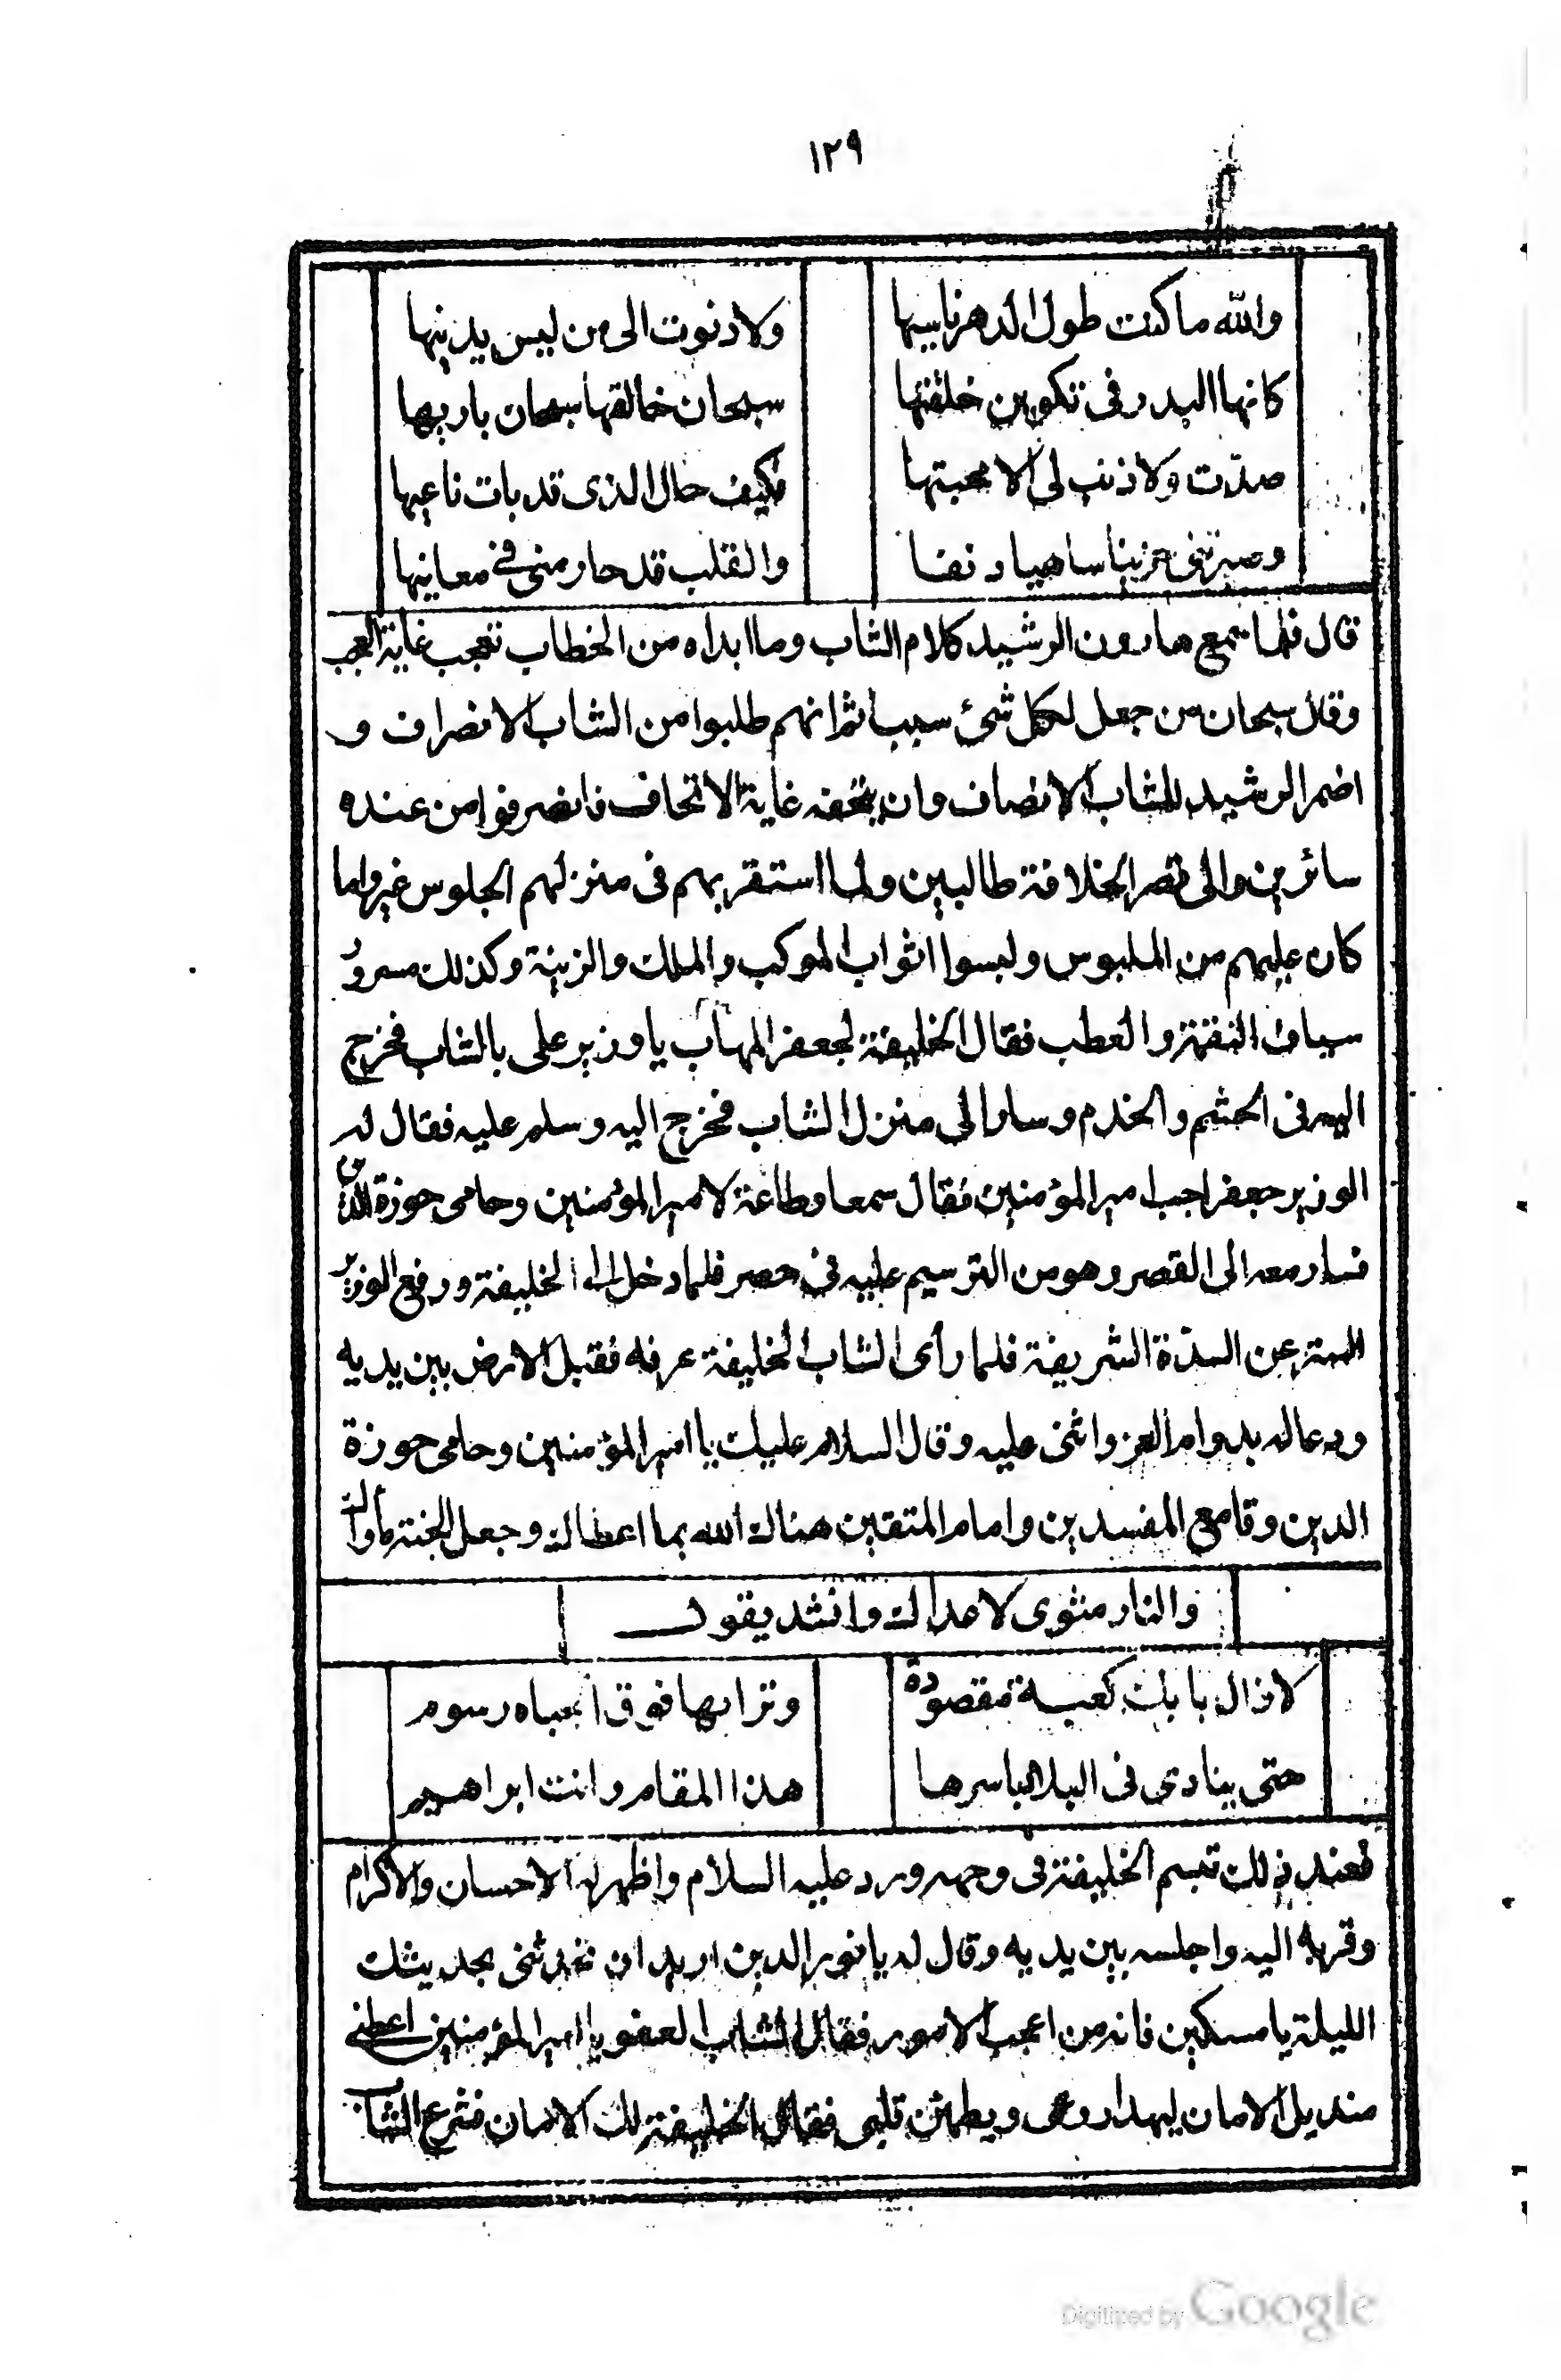 ١٢٩
والله ما كنت طول الدهر ناسيها ولا دنوت الى من ليس يدنيها
كانها البدر فى تكوين خلقتها سبحان خالقها سبحان باريها
صدّت ولا ذنب لى الا محبتها فكيف حال الذى قد بات ناعيها
وصيرتنى حزينا ساهيا دنفا والقلب قد حار منى فى معانيها
قال فلما سمع هارون الرشيد كلام الشاب وما ابداه من الخطاب تعجب غاية العجب
وقال سبحان من جعل لكل شئ سببا ثم انهم طلبوا من الشاب الانصراف و
اضمر الرشيد للشاب الانصاف وان يتحفه غاية الاتحاف فانصرفوا من عنده
سائرين والى قصر الخلافة طالبين ولما استقر بهم فى منزلهم الجلوس غيروا ما
كان عليهم من الملبوس ولبسوا اثواب الموكب والملك والزينة وكذلك مسرور
سياف النقمة والعطب فقال الخليفة لجعفر المهاب يا وزير على بالشاب فخرج
اليه فى الحشم والخدم وسار الى منزل الشاب فخرج اليه وسلم عليه فقال له
الوزير جعفر اجب امير المؤمنين فقال سمعا وطاعة لامير المؤمنين وحامى حوزة الدين
فسار معه الى القصر وهو من الترسيم عليه فى حصر فلما دخل الى الخليفة ورفع الوزير
الستر عن السدّة الشريفة فلما رأى الشاب الخليفة عرفه فقبل الارض بين يديه
ودعا له بدوام العز واثنى عليه وقال السلام عليك يا امير المؤمنين وحامى حوزة
الدين وقامع المفسدين وامام المتقين هناك الله بما اعطاك وجعل الجنة مأواك
والنار مثوى لاعداك وانشد يقول
لا زال بابك كعبة مقصودة وترابها فوق الجباه رسوم
حتى ينادى فى البلاد باسرها هذا المقام وانت ابراهيم
فعند ذلك تبسم الخليفة فى وجهه ورد عليه السلام واظهر له الاحسان والاكرام
وقربه اليه واجلسه بين يديه وقال له يا نور الدين اريد ان تحدثنى بحديثك
الليلة يا مسكين فانه من اعجب الامور فقال الشاب العفو يا امير المؤمنين اعطنى
منديل الامان ليهدا روعى ويطمئن قلبى فقال الخليفة لك الامان فشرع الشاب
Digitized by Google